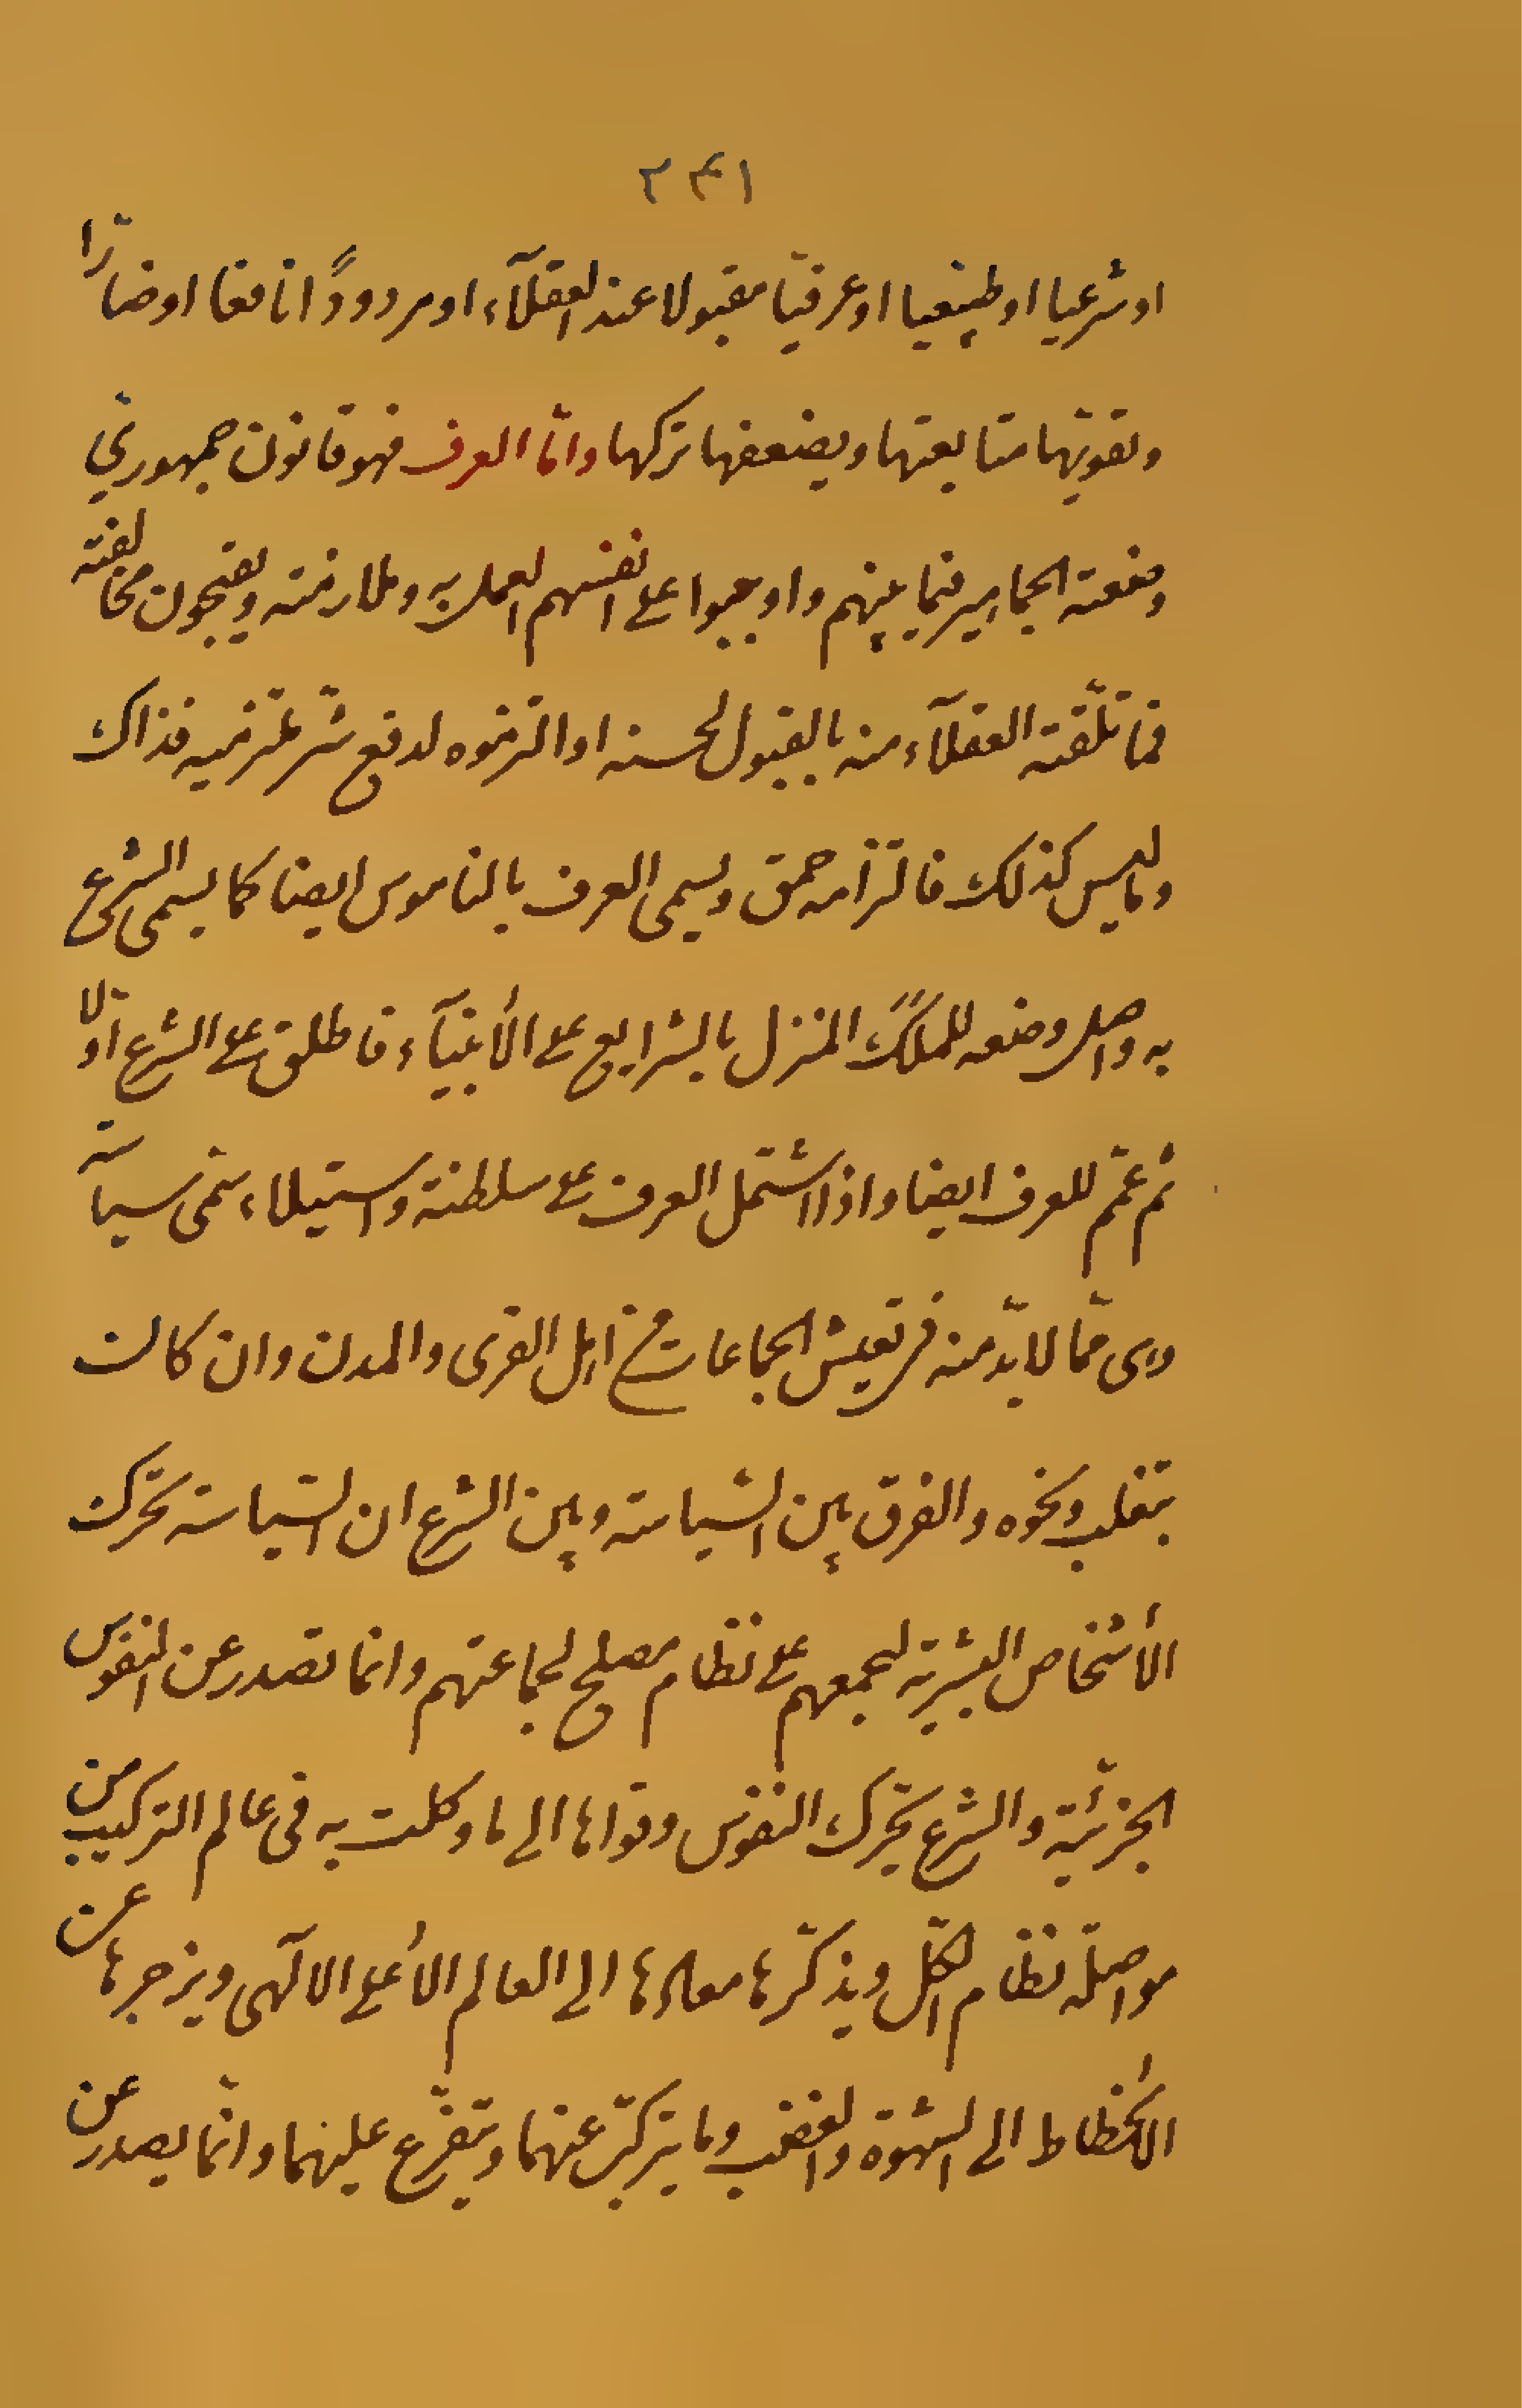 ٣٤١
او شرعيا او طبيعيا او عرفيّا مقبولا عند العقلآء او مردودًا نافعا او ضارّا
وتقويّها متابعتها ويضعفها تركها وامّا العرف فهو قانون جمهوريّ
وضعته الجماهير فيما بينهم واوجبوا على انفسهم العمل به وملازمته ويقبحون مخالفته
فما تلّقته العقلآء منه بالقبول لحسنه او التزموه لدفع شرّ ملتزميه فذاك
وما ليس كذلك فالتزامه حمق ويسمى العرف بالناموس ايضا كما يسمى الشرع
به واصل وضعه للملك المنزل بالشرايع على الأنبيآء فاطلق على الشرع اوّلا
ثم عمّ للعرف ايضا واذا اشتمل العرف على سلطنة واستيلاء سمّى سياسة
وهى ممّا لا بدّ منه فى تعيش الجماعات من اهل القرى والمدن وان كانت
بتغلب ونحوه والفرق بين السّياسة وبين الشرع ان السّياسة تحرّك
الأشخاص البشرية ليجمعهم على نظام مصلح لجماعتهم وانما تصدر عن النفوس
الجزئيّة والشرع يحرّك النفوس وقواها الى ما وكلت به فى عالم التركيب من
مواصلة نظام الكلّ ويذكّرها معادها الى العالم الأعلى الالٓهى ويزجرها عن
الأنحطاط الى الشهوة والغضب وما يتركّب عنهما ويتفرّع عليهما وانّما يصدر عن